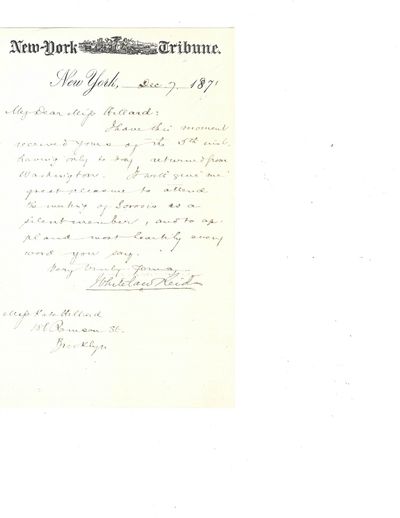 New-York Tribune.
New York, Dec 7, 1871
My Dear Miss Hillard:
I have this moment
received yours of the 5th inst.
having only to day returned from
Washington. It will give me
great pleasure to attend
the meeting of Sorosis as a
silent member, and to ap-
plaud most heartily every
word you say.
Very truly yours,
Whitelaw Reid
Miss Kate Hillard
Remsen St.
Brooklyn